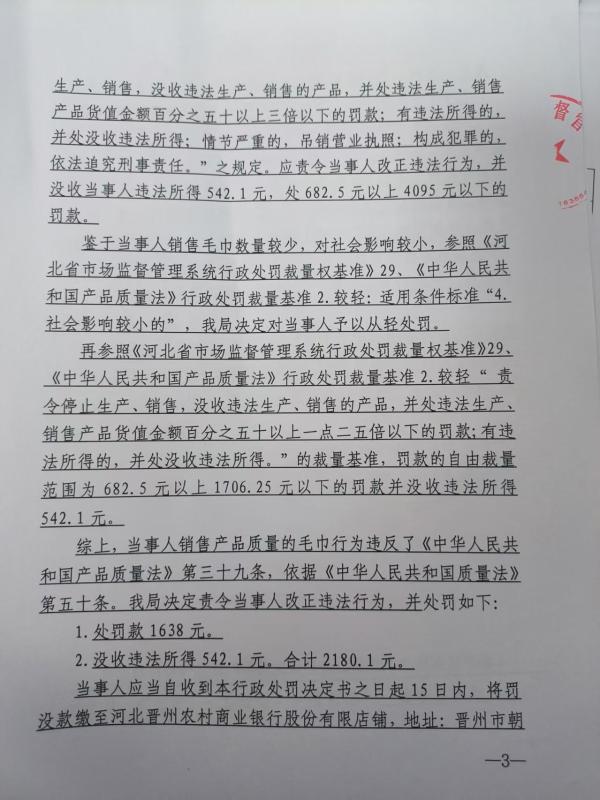 生产、销售，没收违法生产、销售的产品，并处违法生产、销售
产品货值金额百分之五十以上三倍以下的罚款；有违法所得的，
并处没收违法所得；情节严重的，吊销营业执照；构成犯罪的，
依法追究刑事责任。”之规定。应责令当事人改正违法行为，并
没收当事人违法所得 542.1 元，处 682.5 元以上 4095 元以下的
罚款。
鉴于当事人销售毛巾数量较少，对社会影响较小，参照《河
北省市场监督管理系统行政处罚裁量权基准》29、《中华人民共
和国产品质量法》行政处罚裁量基准 2.较轻：适用条件标准“4.
社会影响较小的”，我局决定对当事人予以从轻处罚。
再参照《河北省市场监督管理系统行政处罚裁量权基准》29、
《中华人民共和国产品质量法》行政处罚裁量基准 2.较轻“ 责
令停止生产、销售，没收违法生产、销售的产品，并处违法生产、
销售产品货值金额百分之五十以上一点二五倍以下的罚款；有违
法所得的，并处没收违法所得。”的裁量基准，罚款的自由裁量
范围为 682.5 元以上 1706.25 元以下的罚款并没收违法所得
542.1 元。
综上，当事人销售产品质量的毛巾行为违反了《中华人民共
和国产品质量法》第三十九条，依据《中华人民共和国质量法》
第五十条。我局决定责令当事人改正违法行为，并处罚如下：
1.处罚款 1638 元。
2.没收违法所得 542.1 元。合计 2180.1 元。
当事人应当自收到本行政处罚决定书之日起 15 日内，将罚
没款缴至河北晋州农村商业银行股份有限店铺，地址：晋州市朝
—3—
督